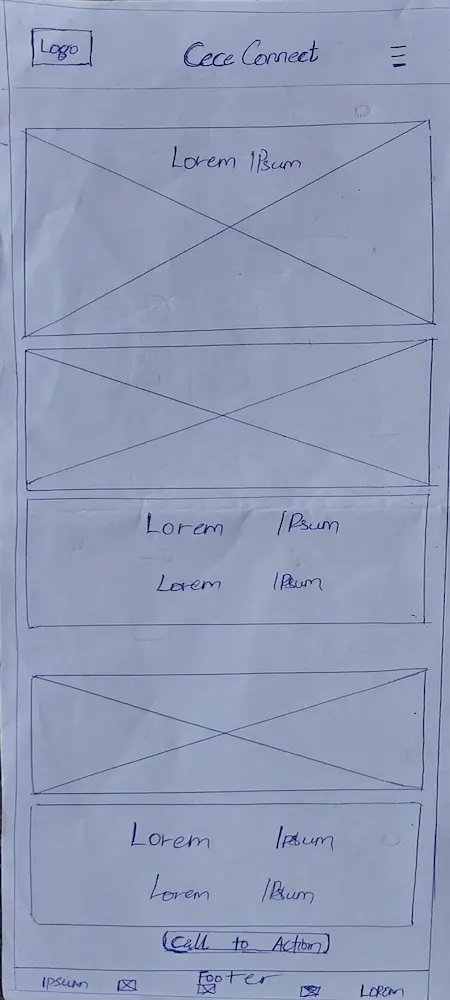 Logo
Cece Connect
Lorem IPsum
Lorem IPsum
Lorem IPsum
Lorem Ipsum
Lorem IPsum
Call to Action
Footer
Ipsum
Lorem